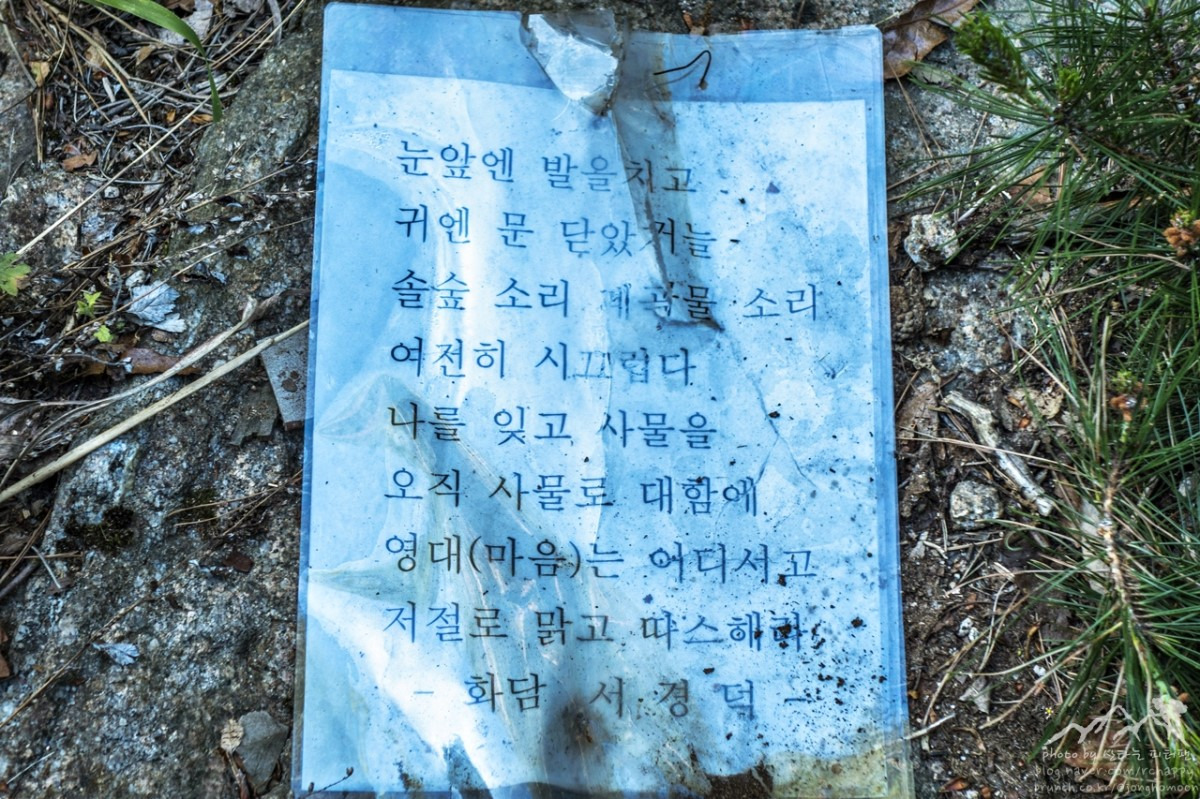 눈앞엔 발을치고
귀엔 문 닫았거늘
솔숲 소리 개울물 소리
여전히 시끄럽다
나를 잊고 사물을
오직 사물로 대함에
영대(마음)는 어디서고
저절로 맑고 따스해라.
- 화담 서 경 덕 -
photo by 산타는 피터팬
blog.naver.com/rchappy
brunch.co.kr/@jonghomoon